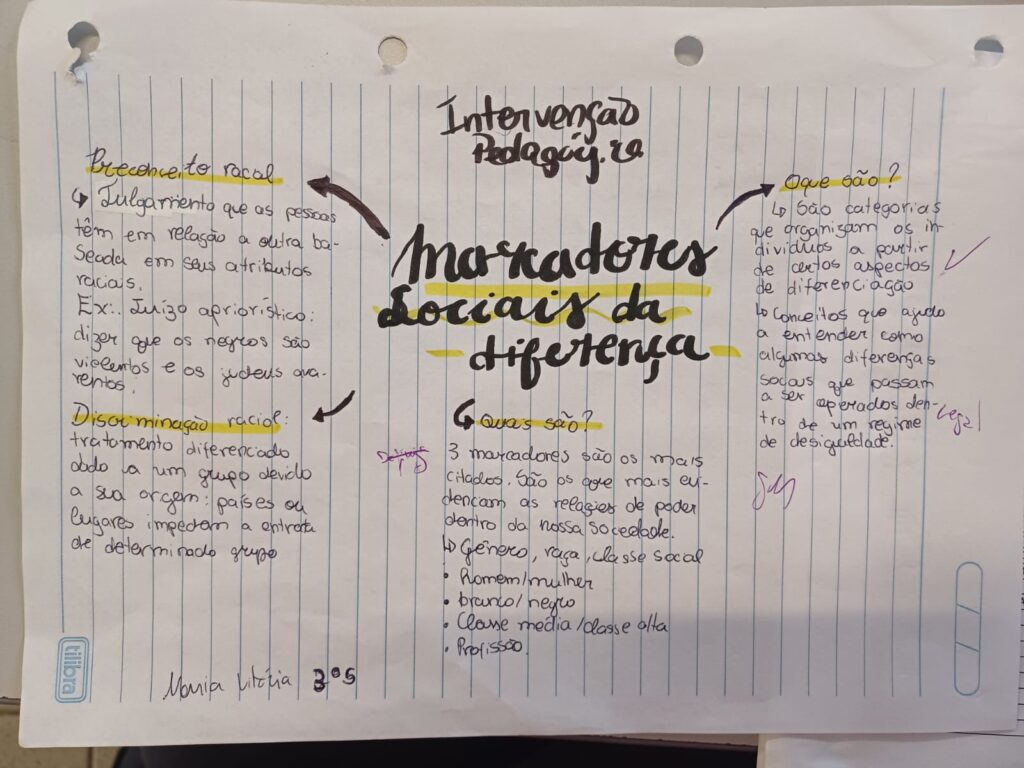 Intervenção
Pedagógica
Marcadores
Sociais da
diferença
Preconceito racal
↳ Julgamento que as pessoas
têm em relação a outra ba-
seada em seus atributos
raciais.
Ex:. Juízo apriorístico:
dizer que os negros são
violentos e os judeus ava-
rentos.
Discriminação racial:
tratamento diferenciado
dado a um grupo devido
a sua orgem: países ou
lugares impedem a entrada
de determinado grupo
Quas são?
3 marcadores são os mais
citados. São os que mais evi-
dencam as relações de poder
dentro da nossa socedade.
↳ Gênero, raça, classe socal
• Homem/mulher
• branco/negro
• Classe média/classe alta
• Profissão.
Oque são?
↳ São categorias
que organizam os in-
divíduos a partir
de certos aspectos
de diferenciação
↳ Conceitos que ajuda
a entender como
algumas diferenças
socais que passam
a ser operados den-
tro de um regime
de desigualdade.
legal
Maria Vitória 3º5
tilibra